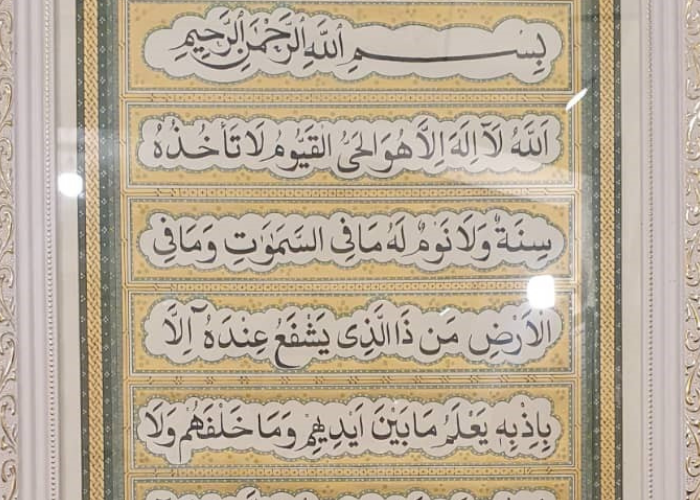 بِسْمِ اللّٰهِ الرَّحْمٰنِ الرَّحِيمِ
اَللّٰهُ لَآ اِلٰهَ اِلَّا هُوَ الْحَىُّ الْقَيُّومُ لَا تَأْخُذُهُ
سِنَةٌ وَلَا نَوْمٌ لَهُ مَا فِى السَّمٰوَاتِ وَمَا فِى
الْاَرْضِ مَنْ ذَا الَّذِى يَشْفَعُ عِنْدَهُٓ اِلَّا
بِاِذْنِهٖ يَعْلَمُ مَا بَيْنَ اَيْدِيهِمْ وَمَا خَلْفَهُمْ وَلَا